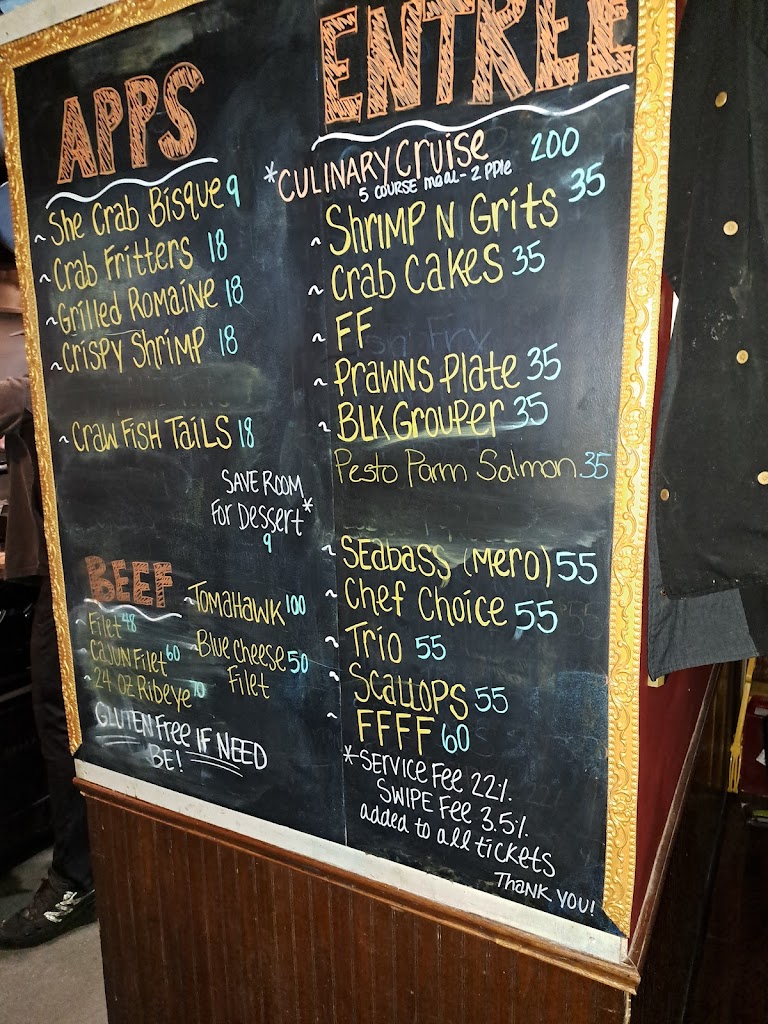 APPS
~ She Crab Bisque 9
~ Crab Fritters 18
~ Grilled Romaine 18
~ Crispy Shrimp 18
~ Craw Fish Tails 18
SAVE ROOM
For Dessert *
9
BEEF
~ Filet 48
~ Cajun Filet 60
~ 24 oz Ribeye
~ TOMAHAWK 100
~ Blue cheese 50
Filet
GLUTEN Free IF NEED
BE!
ENTREE
*CULINARY Cruise 200
5 COURSE meal - 2 PPle
~ Shrimp N Grits 35
~ Crab Cakes 35
~ FF
~ Prawns Plate 35
~ BLK Grouper 35
Pesto Parm Salmon 35
~ Seabass (Mero) 55
~ Chef Choice 55
~ Trio 55
~ Scallops 55
~ FFFF 60
*SERVICE Fee 22%
SWIPE Fee 3.5%
added to all tickets
THANK YOU!